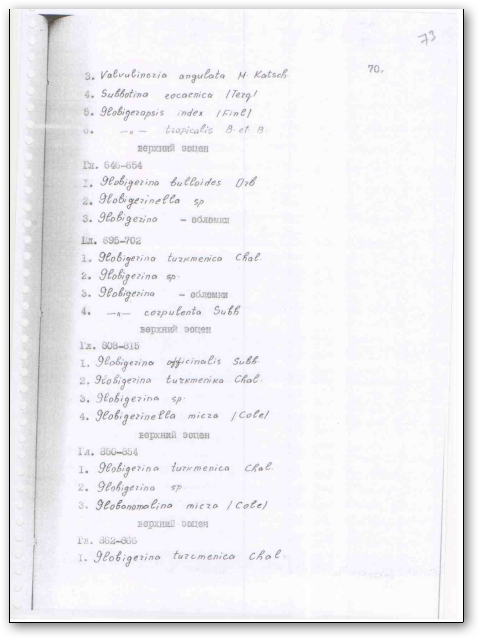 73
70.
3. Valvulineria angulata M. Katsch
4. Subbotina eocaenica /Terq/
5. Globigerapsis index /Finl/
6. —"— tropicalis B. et B
верхний эоцен
Гл. 646-654
1. Globigerina bulloides Orb
2. Globigerinella sp
3. Globigerina – обломки
Гл. 695-702
1. Globigerina turkmenica Chal.
2. Globigerina sp.
3. Globigerina – обломки
4. —"— corpulenta Subb
верхний эоцен
Гл. 808-815
1. Globigerina officinalis Subb.
2. Globigerina turkmenika Chal.
3. Globigerina sp.
4. Globigerinella micra /Cole/
верхний эоцен
Гл. 850-854
1. Globigerina turkmenica Chal.
2. Globigerina sp
3. Globanomalina micra /Cole/
верхний эоцен
Гл. 862-866
1. Globigerina turcmenica Chal.